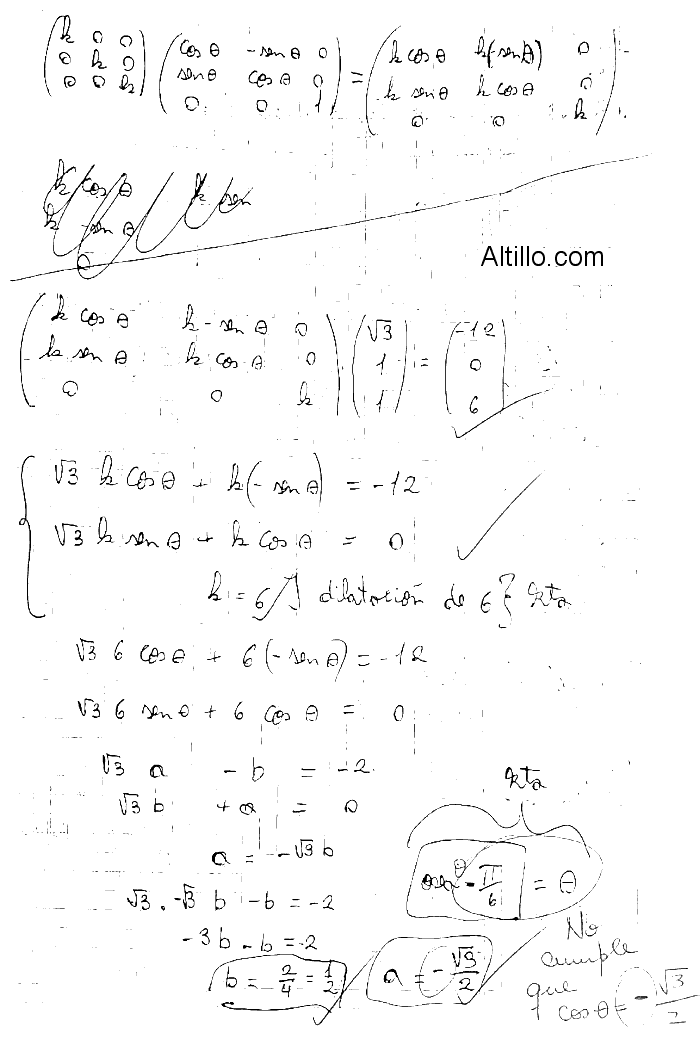 (k 0 0 / 0 k 0 / 0 0 k) (cos θ -sen θ 0 / sen θ cos θ 0 / 0 0 1) = (k cos θ k(-sen θ) 0 / k sen θ k cos θ 0 / 0 0 k)
k cos θ k sen
k -sen θ
0
Altillo.com
(k cos θ k-sen θ 0 / k sen θ k cos θ 0 / 0 0 k) . (√3 / 1 / 1) = (-12 / 0 / 6)
√3 k cos θ + k(-sen θ) = -12
√3 k sen θ + k cos θ = 0
k = 6 dilatación de 6 } Rta
√3 6 cos θ + 6(-sen θ) = -12
√3 6 sen θ + 6 cos θ = 0
√3 a - b = -2
√3 b + a = 0
a = -√3 b
√3 . -√3 b - b = -2
-3b - b = -2
b = 2/4 = 1/2
a = -√3/2
Rta
θ -π/6 = θ
No
cumple
que
cos θ = -√3/2